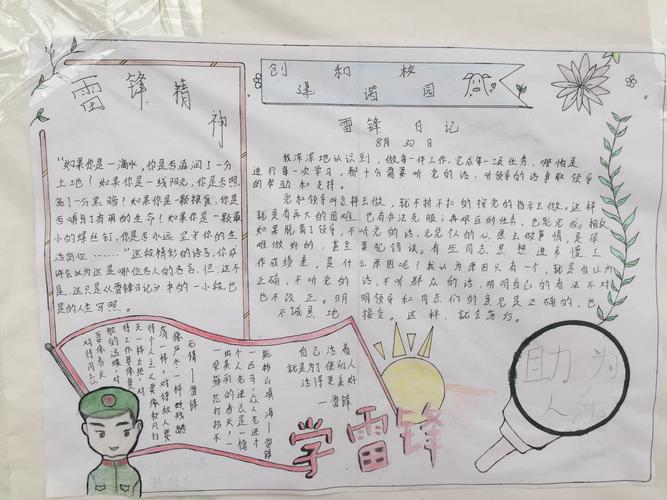 雷锋精
神
"如果你是一滴水，你是否滋润了一分
土地！如果你是一线阳光，你是否照
亮了一分黑暗？如果你是一颗粮食，你是
否哺育了有用的生命？如果你是一颗最
小的螺丝钉，你是否永远坚守你的生
活岗位……"这段精彩的语言，你或
许会以为这是哪位名人的名言，但，这不
是，这只是《雷锋日记》书的一小段，也
是的人生写照。
创和校
建谐园
雷锋日记
8月30日
我深深地认识到，做每一样工作，完成每一次任务，哪怕是
进行每一次学习，都十分需要听党的话，
的帮助和支持。
党和领导叫怎样去做，就不折不扣的按党的指示去做。这样
就是有再大的困难，也有办法克服；再艰巨的任务，也能完成。相反
如果脱离了领导，不听党的话，光凭个人的心愿去做事情，是很
难做好的，甚至要犯错误。有些同志思想进步慢，工
作成绩差，是什么原因呢？我认为原因只有一个，就是自以为
正确，不听党的话，不听群众的话，明明自己的看法不对
也不改正。明明领导和同志们的意见是正确的，也
不诚恳地接受。这样，就会落后。
对待同志
要像春天
般的温暖，对
待工作要像夏
天一样火热，对
待个人主义要像秋风扫
落叶一样，对待敌人要
像严冬一样残酷
无情。—雷锋
一朵鲜花打扮不
出美丽的春天，一
个人先进总是
单，众人先进才
能移山填海—雷锋
自己活着
就是为了使别人
活得更美好
—雷锋
学雷锋
助人为乐